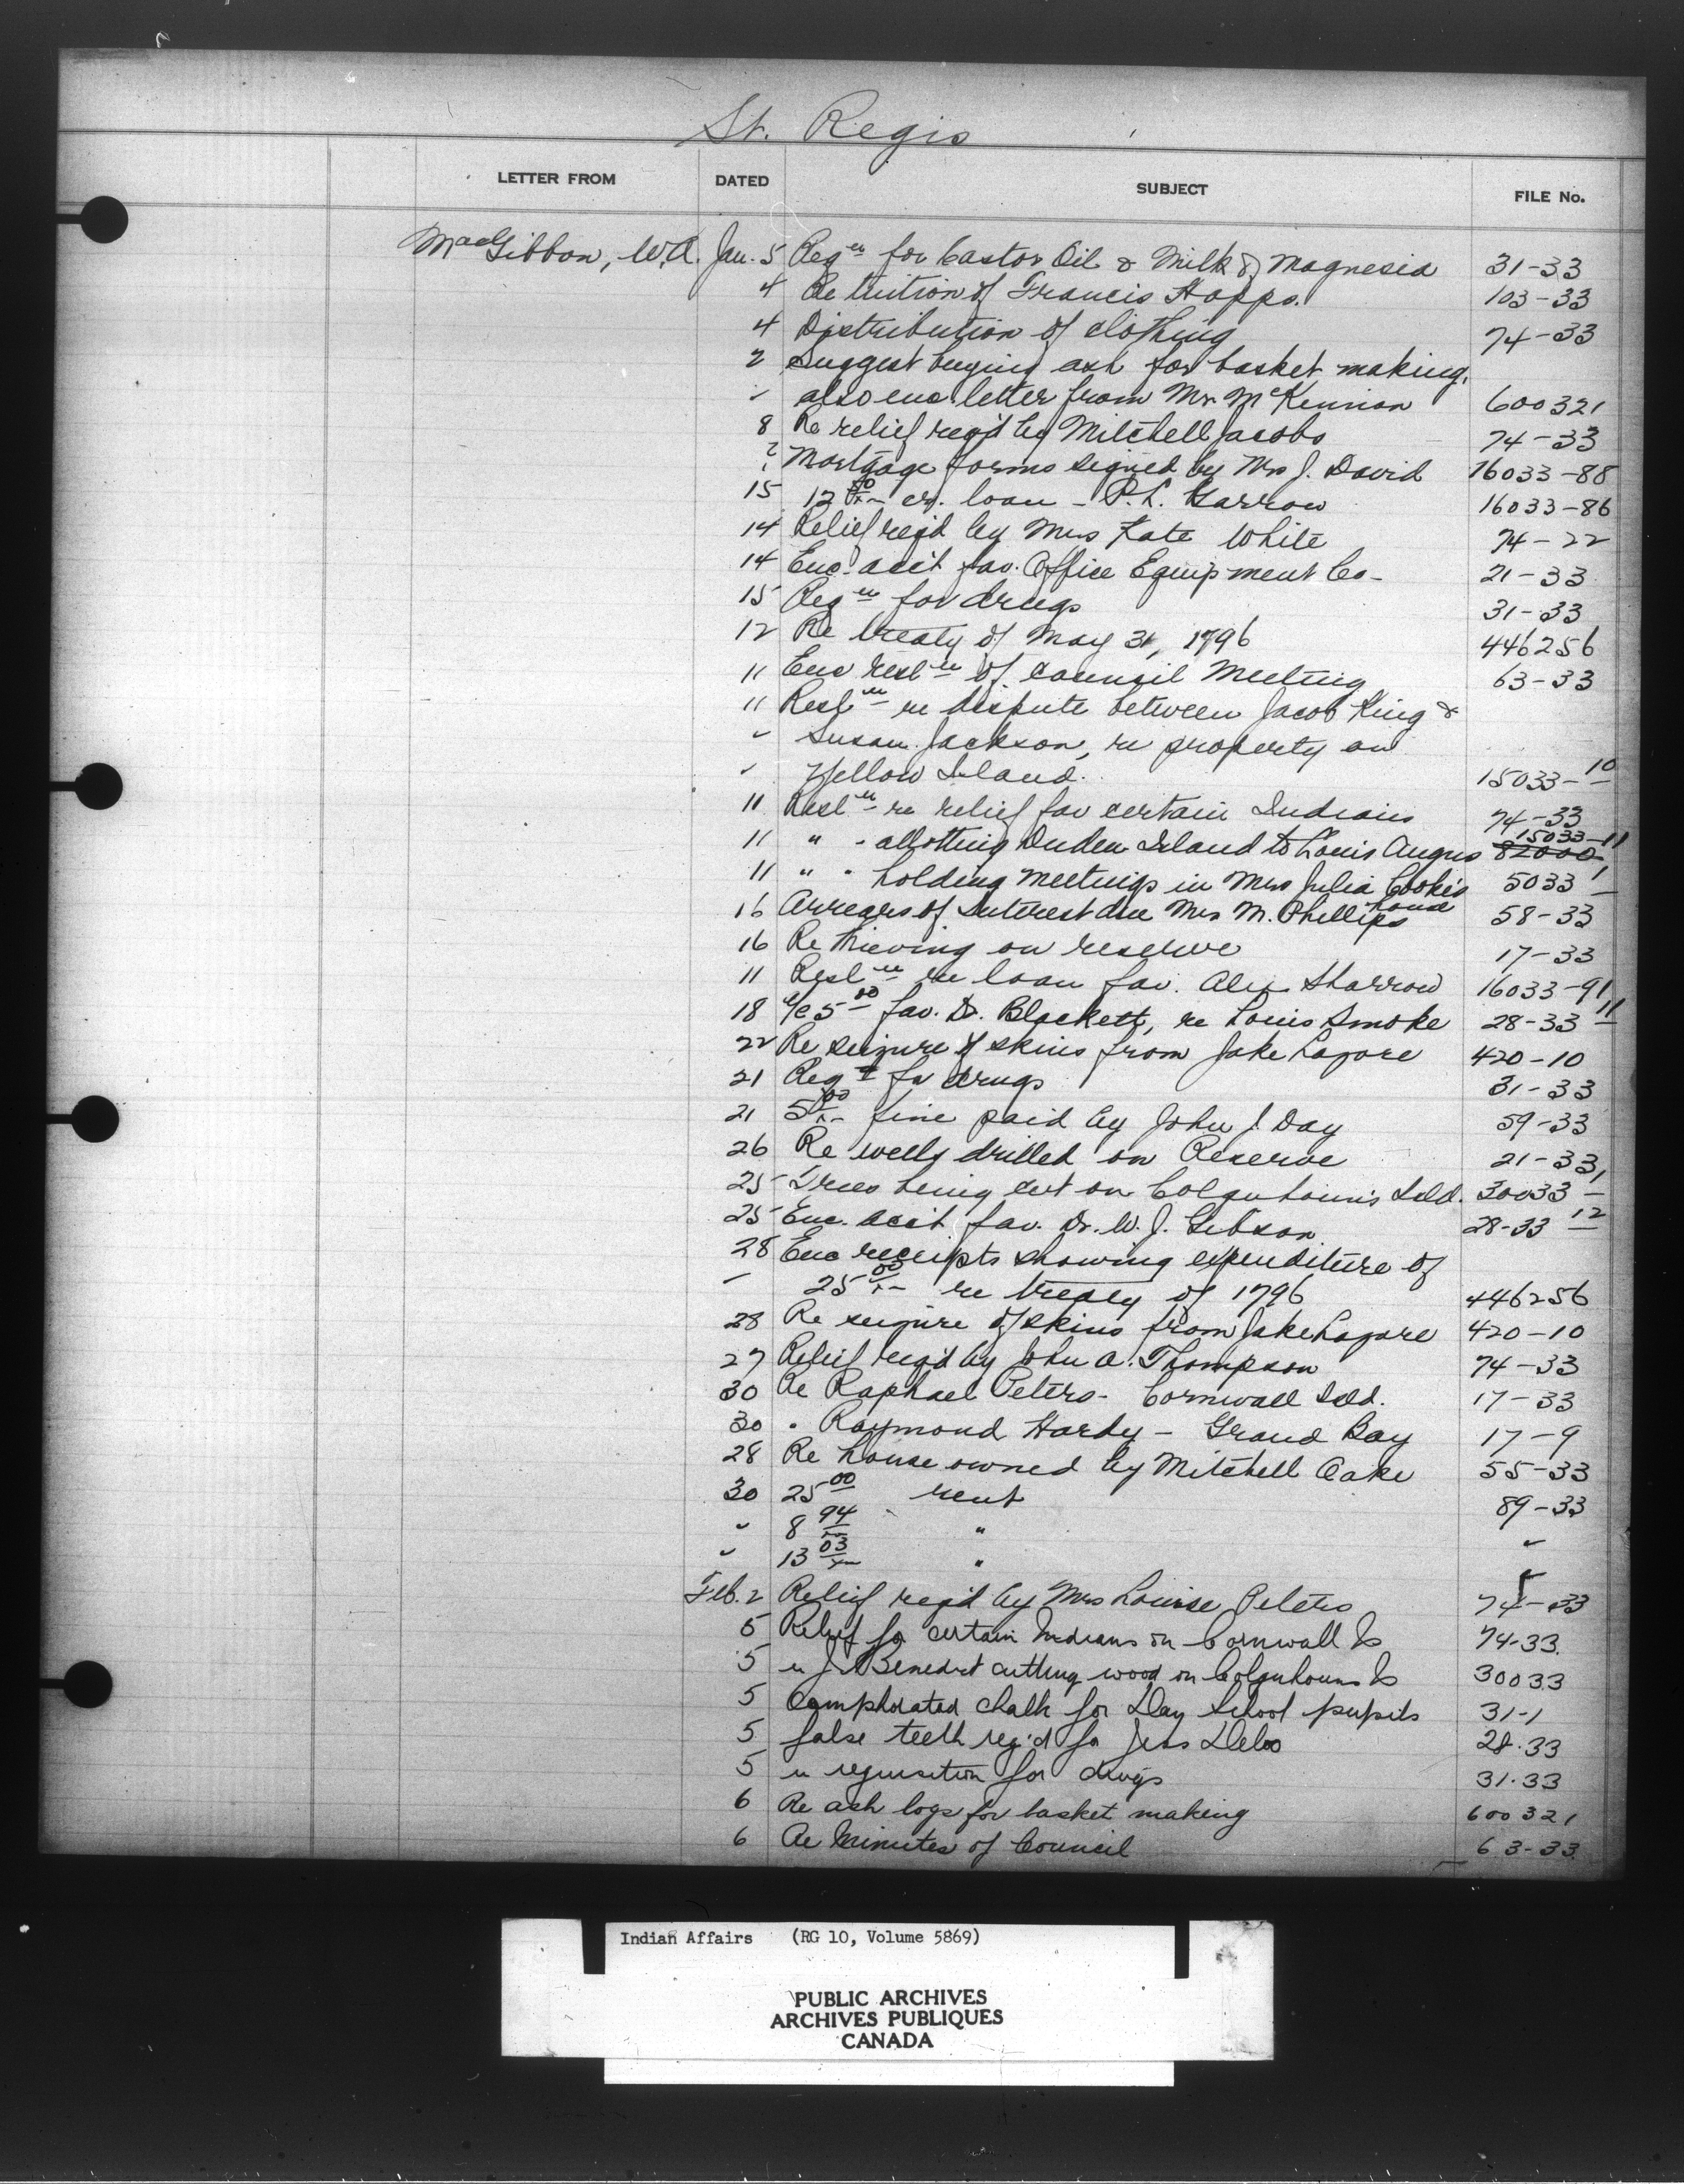 St. Regis
LETTER FROM DATED SUBJECT FILE No.
MacGibbon, W.A. Jan. 5 Reqn for Castor Oil & Milk of Magnesia 31-33
4 Re tuition of Francis Happs. 103-33
4 Distribution of clothing 74-33
2 Suggest buying ash for basket making,
" also enc. letter from Mr. McKennion 600321
8 Re relief req'd by Mitchell Jacobs 74-33
? Mortgage forms signed by Mrs J. David 16033-88
15 12 50/xx cr. loan - P.L. Garrow 16033-86
14 Relief req'd by Mrs Kate White 74-22
14 Enc. acc't fav. Office Equipment Co- 21-33
15 Reqn for drugs 31-33
12 Re treaty of May 31, 1796 446256
11 Enc resln of council Meeting 63-33
11 Resln re dispute between Jacob King &
" Susan Jackson, re property on
" Yellow Island. 15033-10
11 Resln re relief for certain Indians 74-33
11 " " allotting Island to Louis Angus 82000 15033-11
11 " " holding meetings in Mrs Julia Cook's house 5033-1
16 Arrears of Interest due Mrs M. Phillips 58-33
16 Re thieving on reserve 17-33
11 Resln re loan fav. Alex Sharrow 16033-91
18 a/c 5 00 fav. Dr. Blackett, re Louis Smoke 28-33 11
22 Re seizure of skins from Jake Lazore 420-10
21 Reqn for drugs 31-33
21 5 00/xx fine paid by John J. Day 59-33
26 Re wells drilled on Reserve 21-33
25 Trees being cut on Colquhoun's Isld. 30033-1
25 Enc. acc't fav. Dr. W. J. Gibson 28-33 12
28 Enc receipts showing expenditure of
" 25 00/xx re treaty of 1796 446256
28 Re seizure of skins from Jake Lazore 420-10
27 Relief req'd by John A. Thompson 74-33
30 Re Raphael Peters - Cornwall Isld. 17-33
30 " Raymond Hardy - Grand Bay 17-9
28 Re house owned by Mitchell Oake 55-33
30 25 00 rent 89-33
" 8 94/xx " "
" 13 03/xx " "
Feb. 2 Relief req'd by Mrs Louise Peters 74-33
5 Relief for certain Indians on Cornwall Is 74-33.
5 re J. Benedict cutting wood on Colquhouns Is 30033
5 Camphorated chalk for Day School pupils 31-1
5 false teeth req'd for Jess 28.33
5 re requisition for drugs 31.33
6 Re ash logs for basket making 600321
6 Re Minutes of Council 63-33.
Indian Affairs (RG 10, Volume 5869)
PUBLIC ARCHIVES
ARCHIVES PUBLIQUES
CANADA